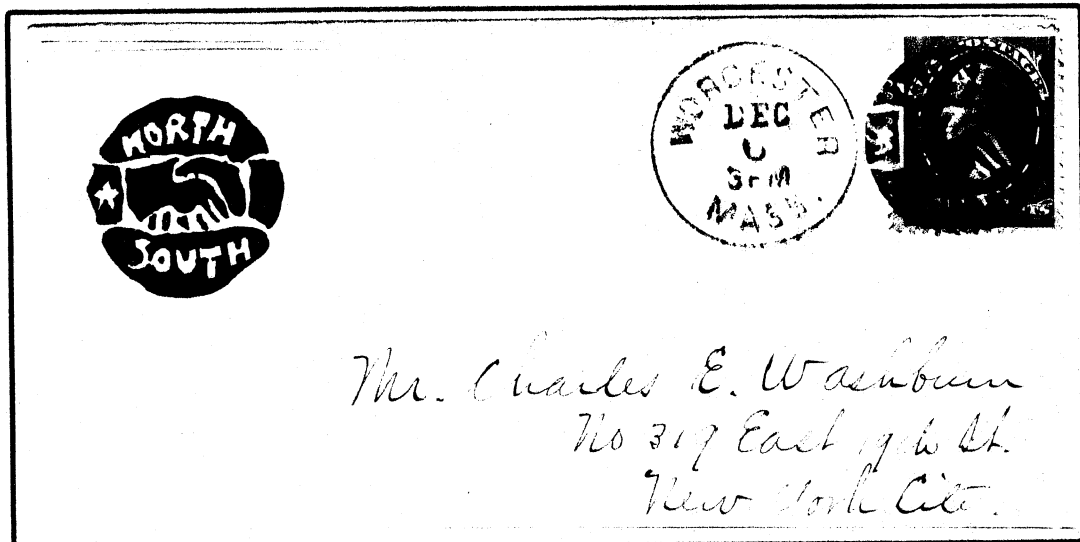 NORTH
SOUTH
WORCESTER
DEC
6
3 PM
MASS.
POSTAGE
Mr. Charles E. Washburn
No 319 East 19th St.
New York City.